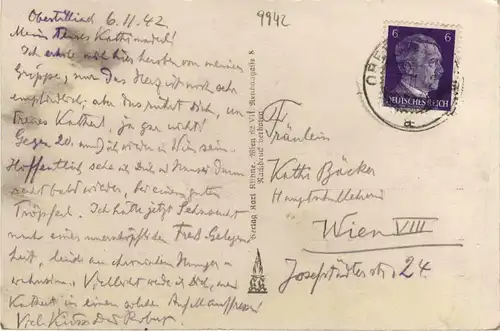 Obertilliach 6.11.42
Mein Kathimaderl!
Ich erhole mich hier heroben von meiner
Grippe, nur das Herz ist noch sehr
empfindlich, aber das rührt Dich, un-
treues Katherl, ja gar nicht!
Gegen 20. werd ich wieder in Wien sein.
Hoffentlich sehe ich Dich
recht bald wieder, bei einem guten
Tröpferl. Ich hätte jetzt Sehnsucht
nach einer unerschöpflichen Freß Gelegen-
heit, leide an chronischem Hunger-
wahnsinn. Vielleicht werde ich Dich, mein
Katherl in einem solchen Anfall auffressen!
Viel Küsse Dein Robert
9942
6 6
DEUTSCHES REICH
OBER
a
Verlag Karl Kühne, Wien 62 VII. Neubaugasse 8
Nachdruck verboten
Fräulein
Kathi Böcker
Hauptschullehrerin
Wien VIII
Josefstädterstr. 24